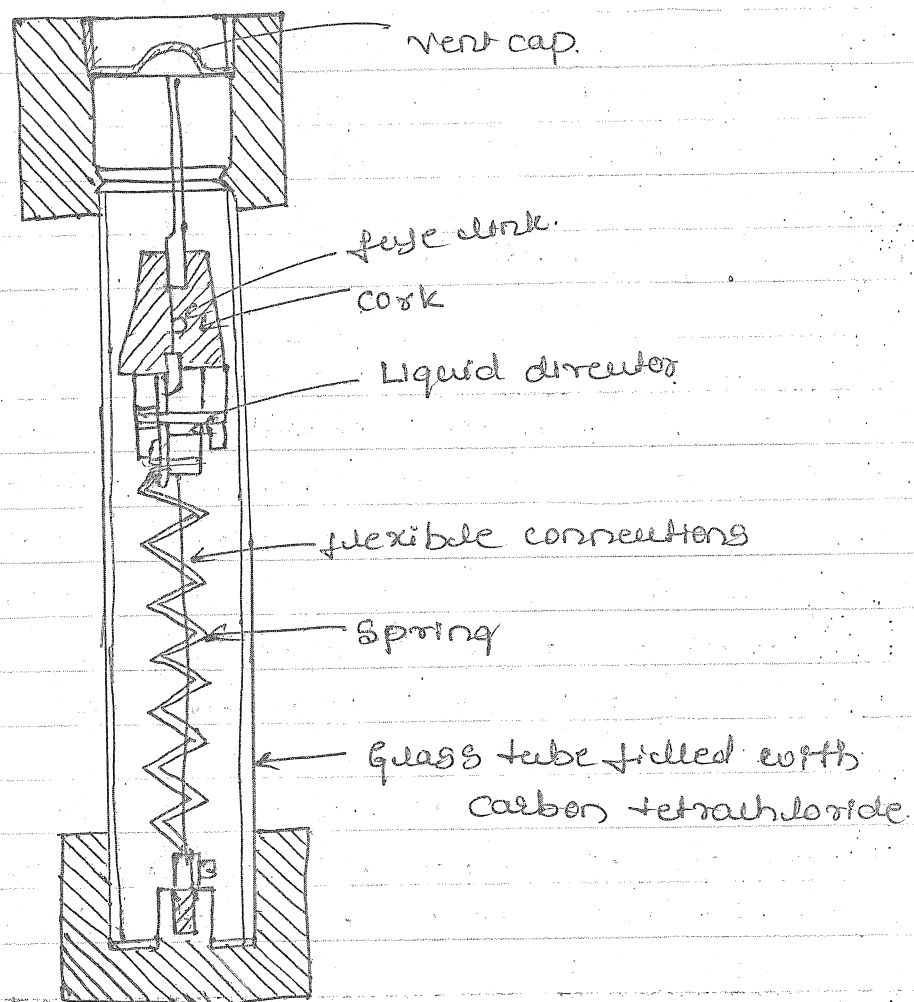 vent cap.
fuse link.
cork
Liquid director
flexible connections
Spring
Glass tube filled with
carbon tetrachloride.